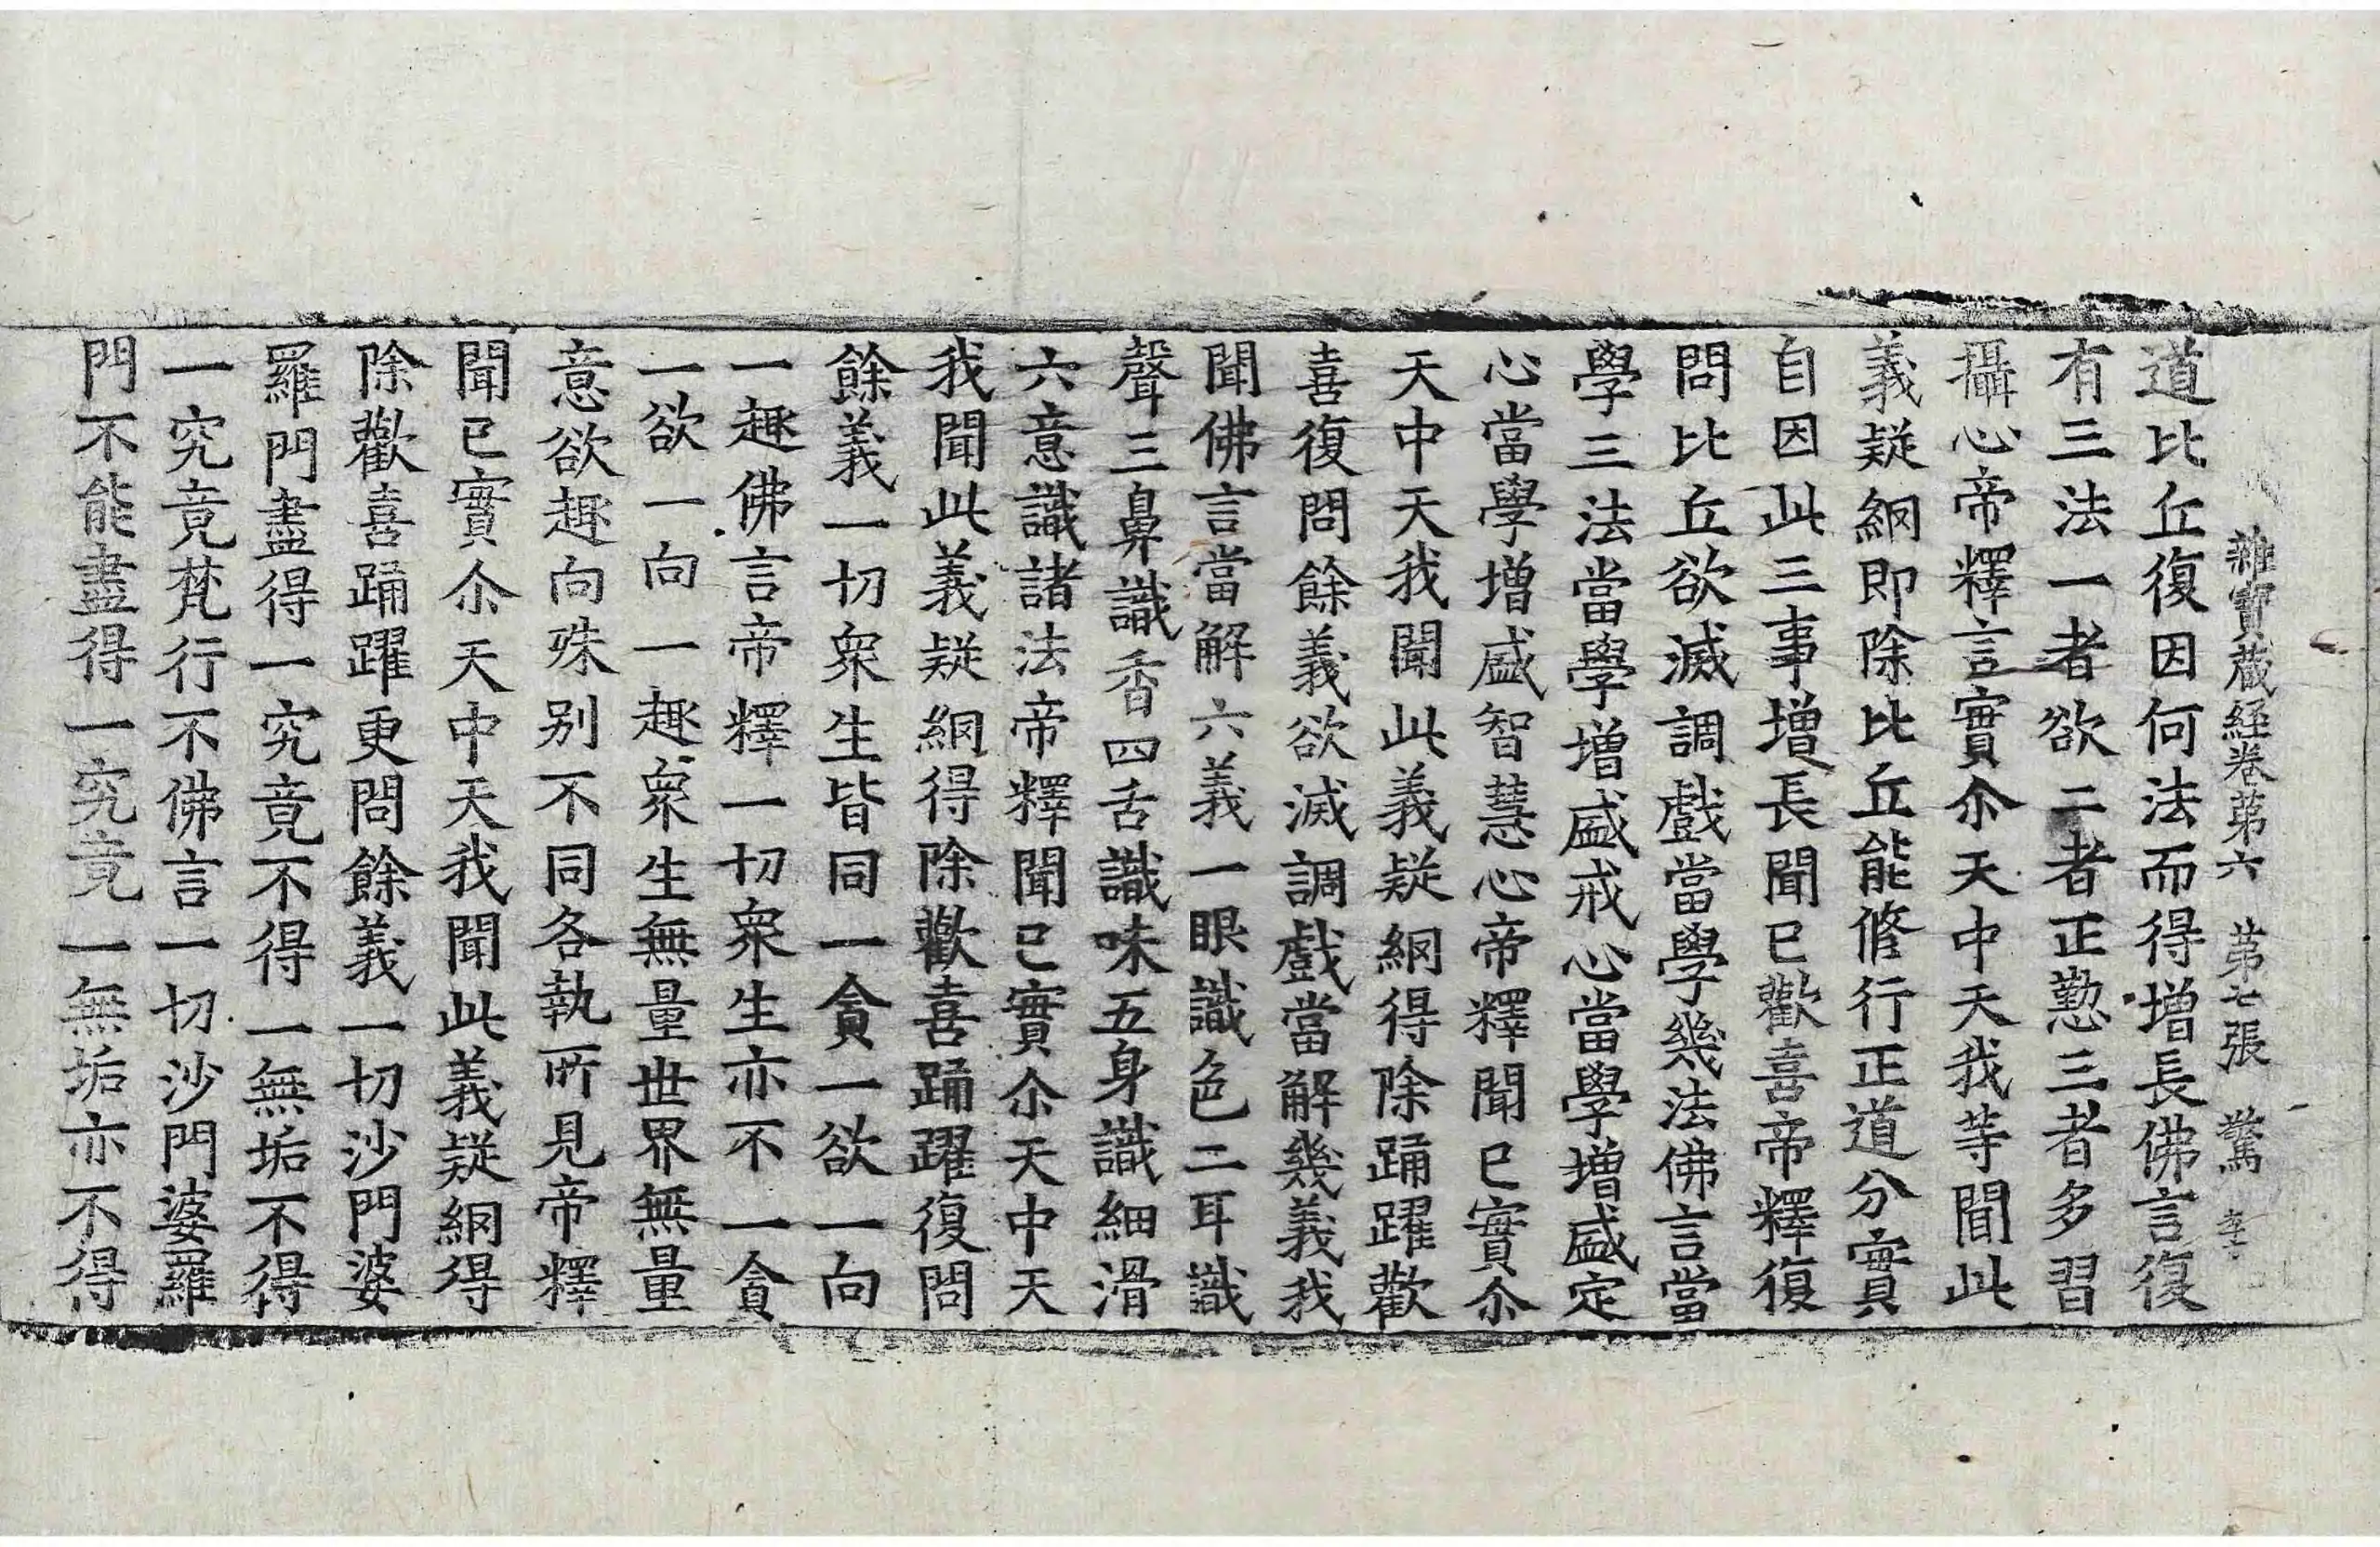 雜寶藏經卷第六 第七張 驚
道比丘復因何法而得增長佛言復
有三法一者欲二者正懃三者多習
攝心帝釋言實尒天中天我等聞此
義疑網即除比丘能脩行正道分實
自因此三事增長聞已歡喜帝釋復
問比丘欲滅調戲當學幾法佛言當
學三法當學增盛戒心當學增盛定
心當學增盛智慧心帝釋聞已實尒
天中天我聞此義疑網得除踊躍歡
喜復問餘義欲滅調戲當解幾義我
聞佛言當解六義一眼識色二耳識
聲三鼻識香四舌識味五身識細滑
六意識諸法帝釋聞已實尒天中天
我聞此義疑網得除歡喜踊躍復問
餘義一切衆生皆同一貪一欲一向
一趣佛言帝釋一切衆生亦不一貪
一欲一向一趣衆生無量世界無量
意欲趣向殊别不同各執所見帝釋
聞已實尒天中天我聞此義疑網得
除歡喜踊躍更問餘義一切沙門婆
羅門盡得一究竟不得一無垢不得
一究竟梵行不佛言一切沙門婆羅
門不能盡得一究竟一無垢亦不得